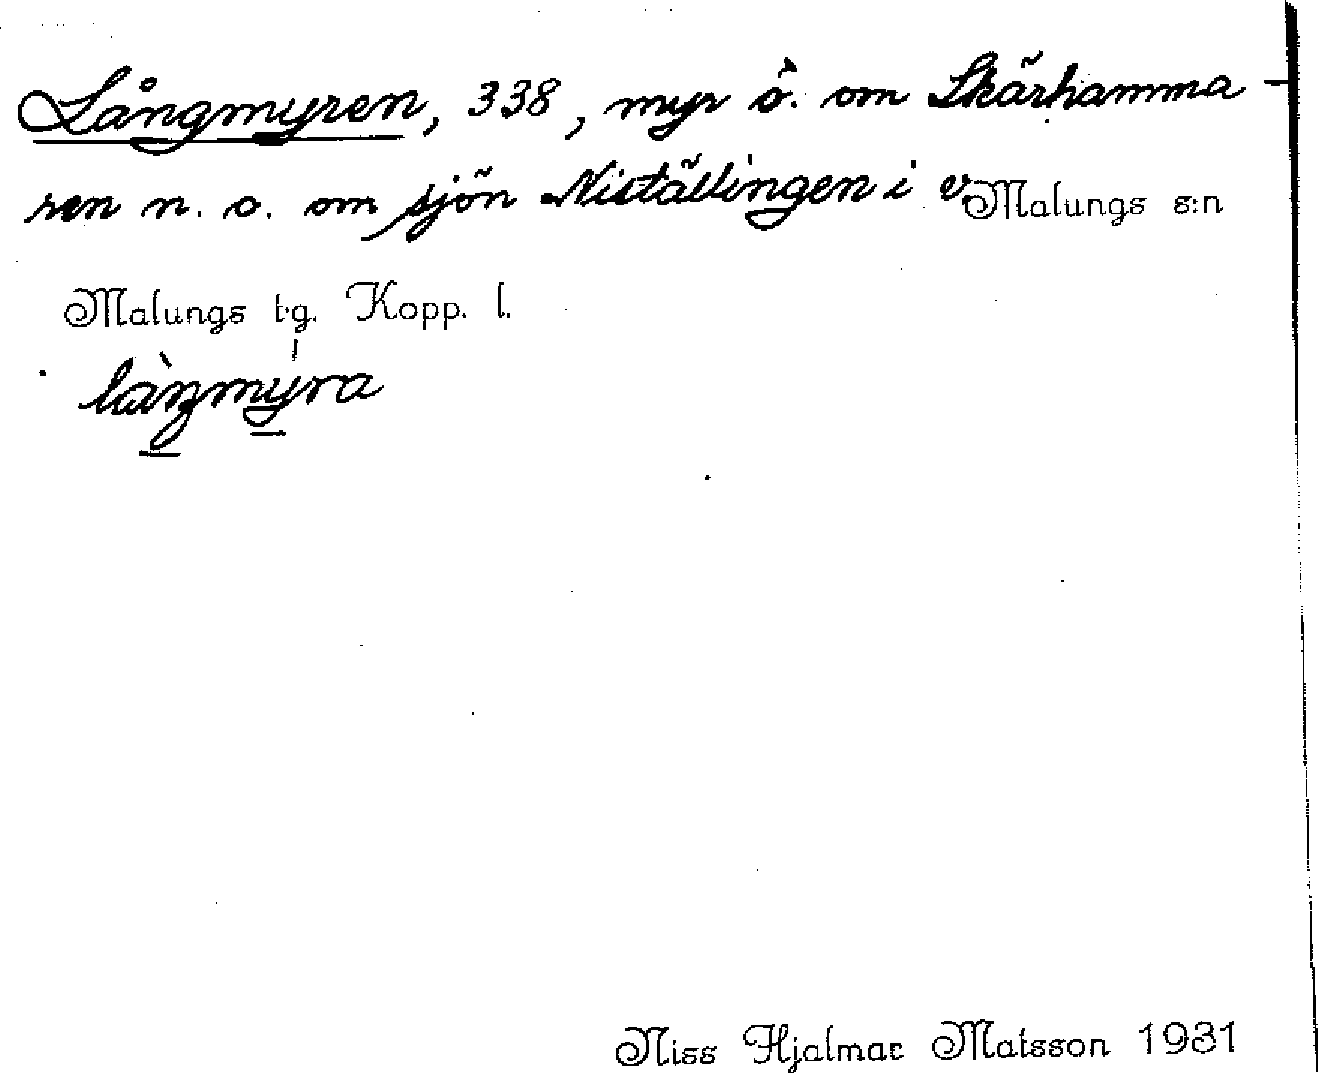 Långmyren, 338, myr ö. om Skärhamma-
ren n. o. om sjön Niställingen i v Malungs s:n
Malungs tg. Kopp. l.
làŋmýra
Niss Hjalmar Matsson 1931